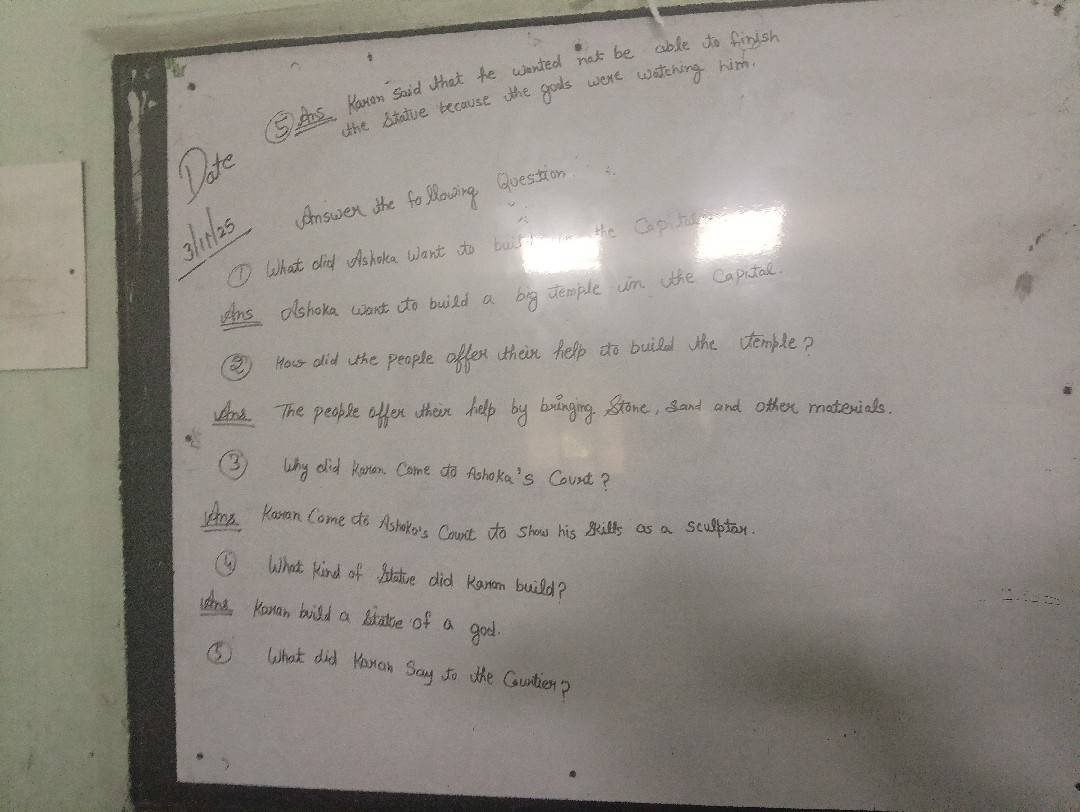 ⑤ Ans Karan said that he wanted not be able to finish
the statue because the gods were watching him.
Date
3/11/25
Answer the following Question
① What did Ashoka want to the Capital
Ans Ashoka want to build a big temple in the Capital.
② How did the people offer their help to build the temple?
Ans The people offer their help by bringing Stone, sand and other materials.
③ Why did Karan Come to Ashoka's Court?
Ans Karan Come to Ashoka's Court to show his skills as a sculptor.
④ What kind of statue did Karan build?
Ans Karan build a statue of a god.
⑤ What did Karan Say to the Courtier?